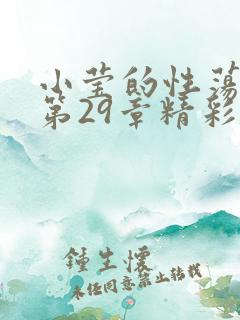 小莹的性荡
第29章精彩
鍾生懷
未经同意禁止转载